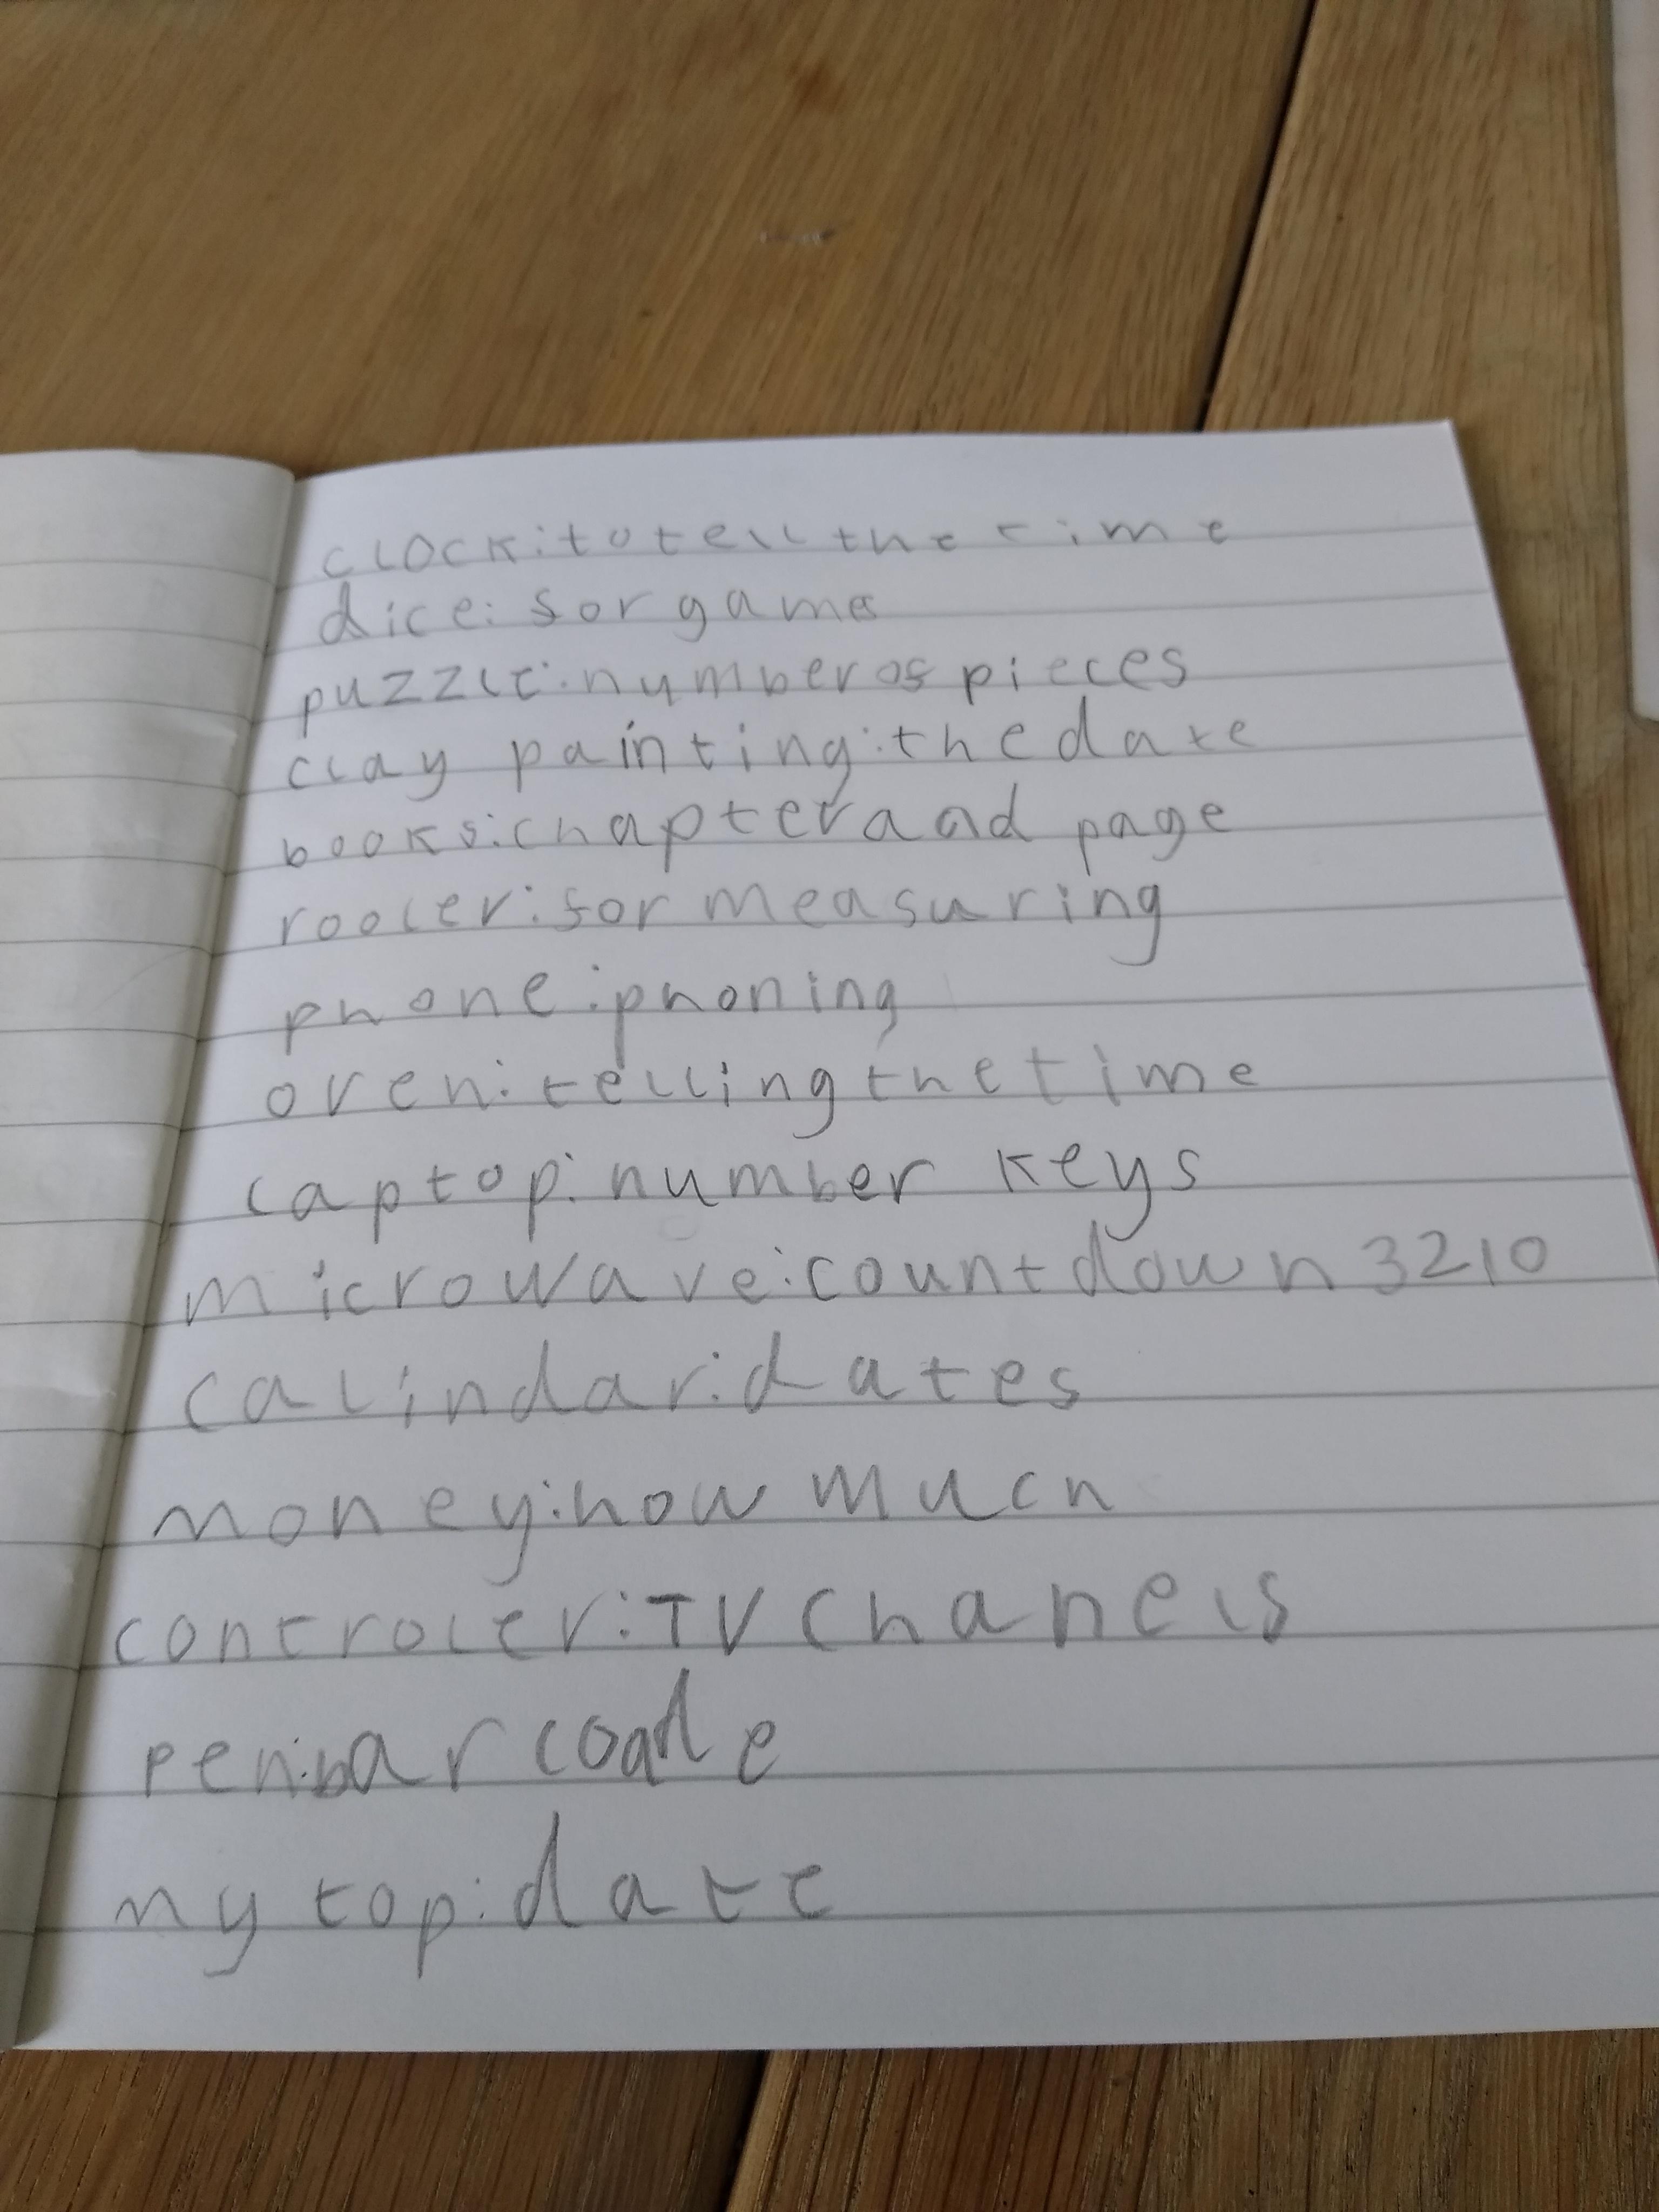 clock: to tell the time
dice: for game
puzzle: number of pieces
clay painting: the date
books: chapter aad page
rooler: for measuring
phone: phoning
oven: telling the time
laptop: number keys
microwave: countdown 3210
calindar: dates
money: how much
controler: TV chanels
pen: bar coade
my top: date